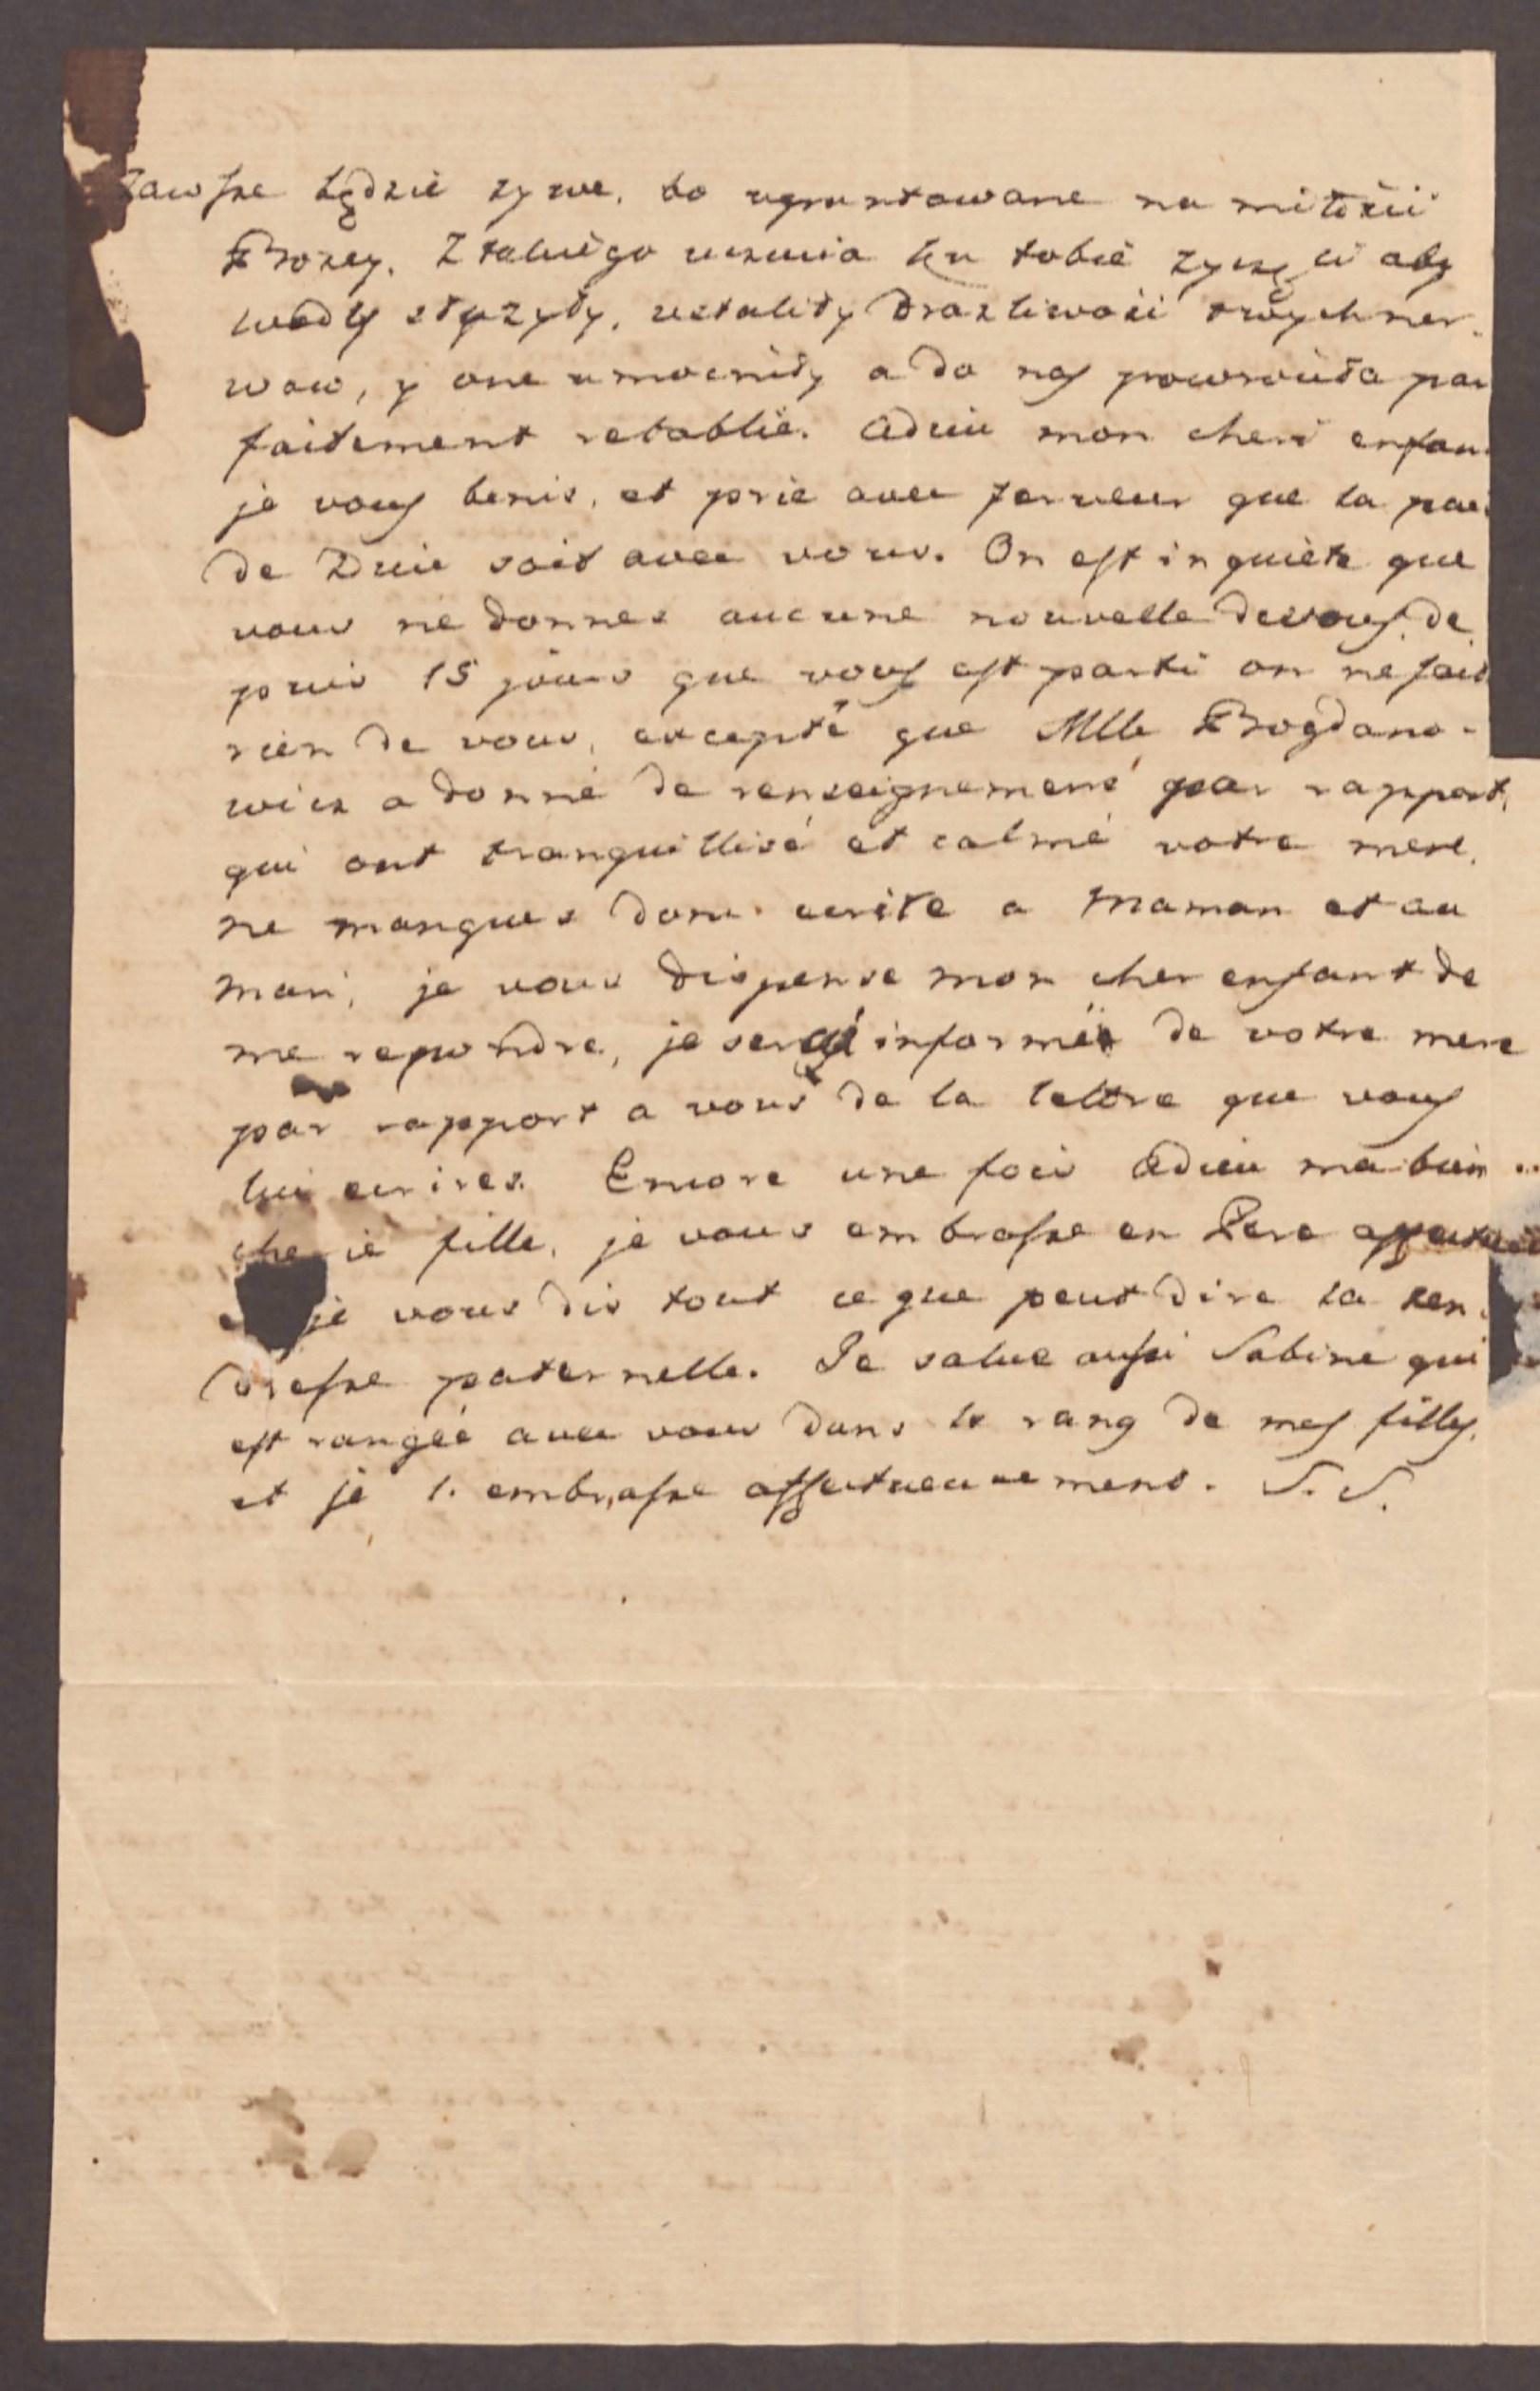 zawsze będzie zywe, bo ugruntowane na miłości
Bozey. Z takiego uczucia ku tobie zyczę ci aby
wody słuzyły, ustaliły drazliwości twych ner-
wow, y one umocniły a do nas powrociła par
faitement retablie. Adieu mon cheri enfan
je vous benis, et prie avec ferveur que la pai
de Dieu soit avec vous. On est inquiete que
vous ne donnes aucune nouvelle de vous, de
puis 15 jours que vous est parti on ne sait
rien de vous, excepté que Mlle Bogdano-
wicz a donné de renseignemens par rapport,
qui ont tranquillisé et calmé votre mere.
ne manques donc ecrite a Maman et au
mari, je vous dispense mon cher enfant de
me repondre, je serai informée de votre mere
par rapport a vous de la lettre que vous
lui ecrires. Encore une fois Adieu ma bien
cherie fille, je vous embrasse en Pere affectue
je vous dis tout ce que peut dire la ten-
dresse paternelle. Je salue aussi Sabine qui
est rangée avec vous dans le rang de mes filles,
et je l'embrasse affectueusement. S. S.